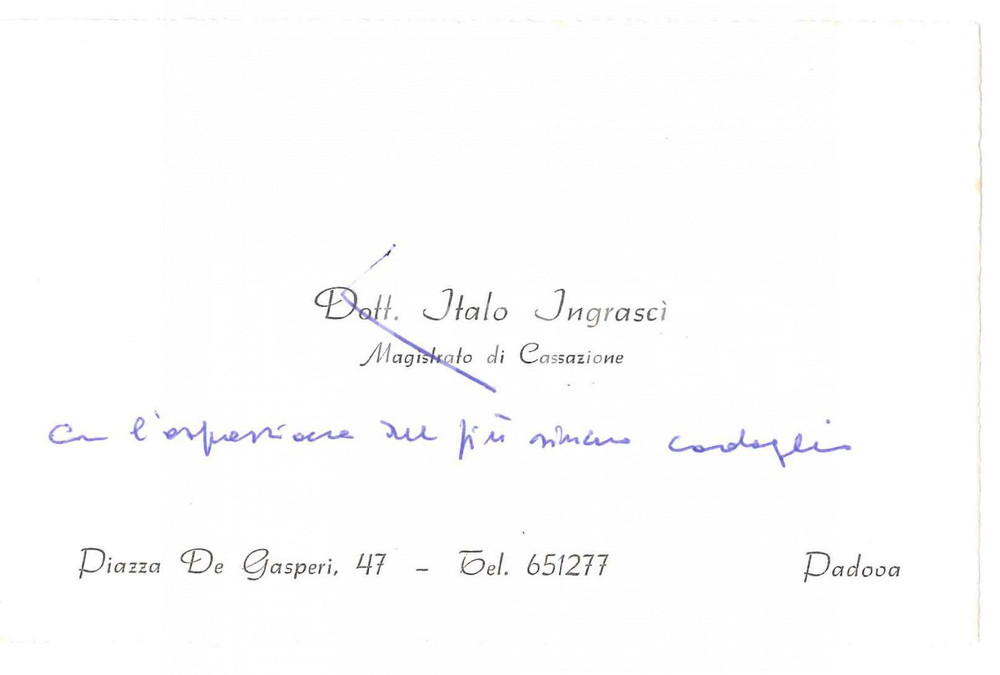 Dott. Italo Ingrascì
Magistrato di Cassazione
con l'espressione del più sincero cordoglio
Piazza De Gasperi, 47 - Tel. 651277 Padova